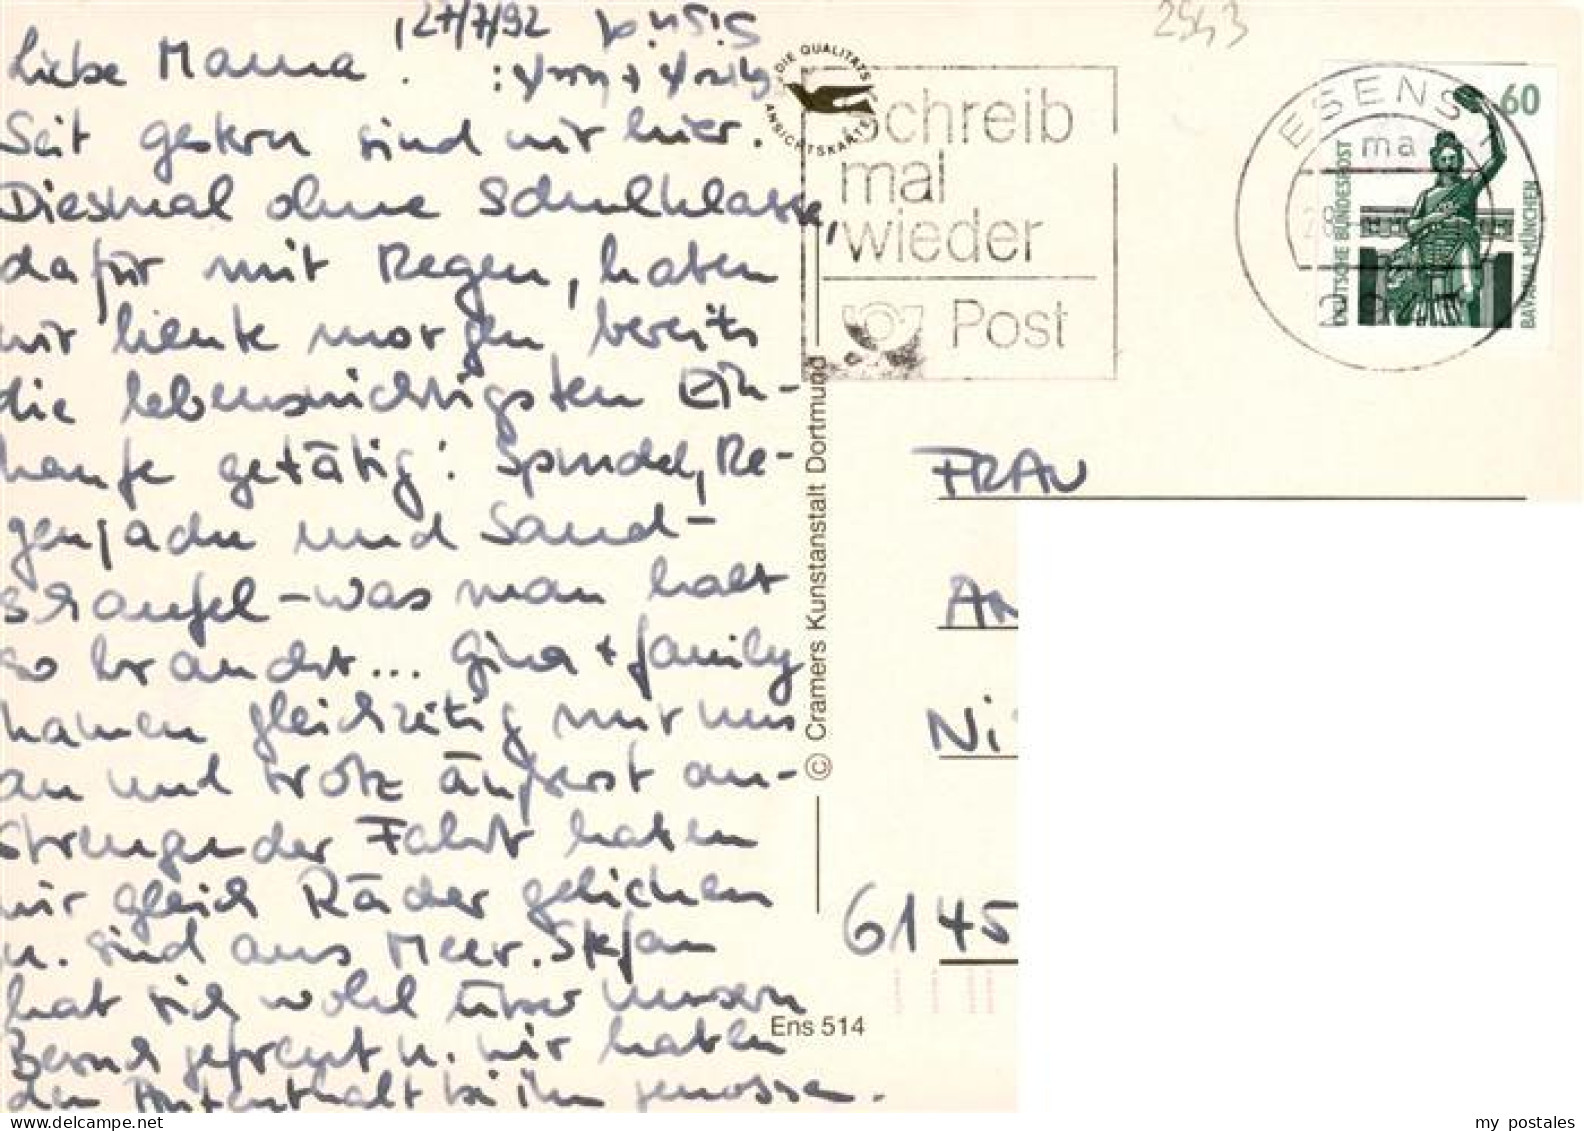 27/7/92
2543
Liebe Mama!
Seit gestern sind wir hier.
Diesmal ohne Schulklasse,
dafür mit Regen, haben
wir heute morgen bereits
die lebenswichtigsten Ein-
käufe getätigt: Sprudel, Re-
genjacken und Sand-
schaufel - was man halt
so braucht... Gina + family
kamen gleichzeitig mit uns
an und trotz äußerst an-
strengender Fahrt haben
wir gleich Räder geliehen
u. sind ans Meer. Stefan
hat sich wohl über unsern
Besuch gefreut u. wir haben
den Aufenthalt bei ihm genossen.
DIE QUALITÄTS
ANSICHTSKARTE
schreib
mal
wieder
Post
ESENS
ma
60
DEUTSCHE BUNDESPOST
BAVARIA MÜNCHEN
© Cramers Kunstanstalt Dortmund
Ens 514
FRAU
Ni
6145
my postales